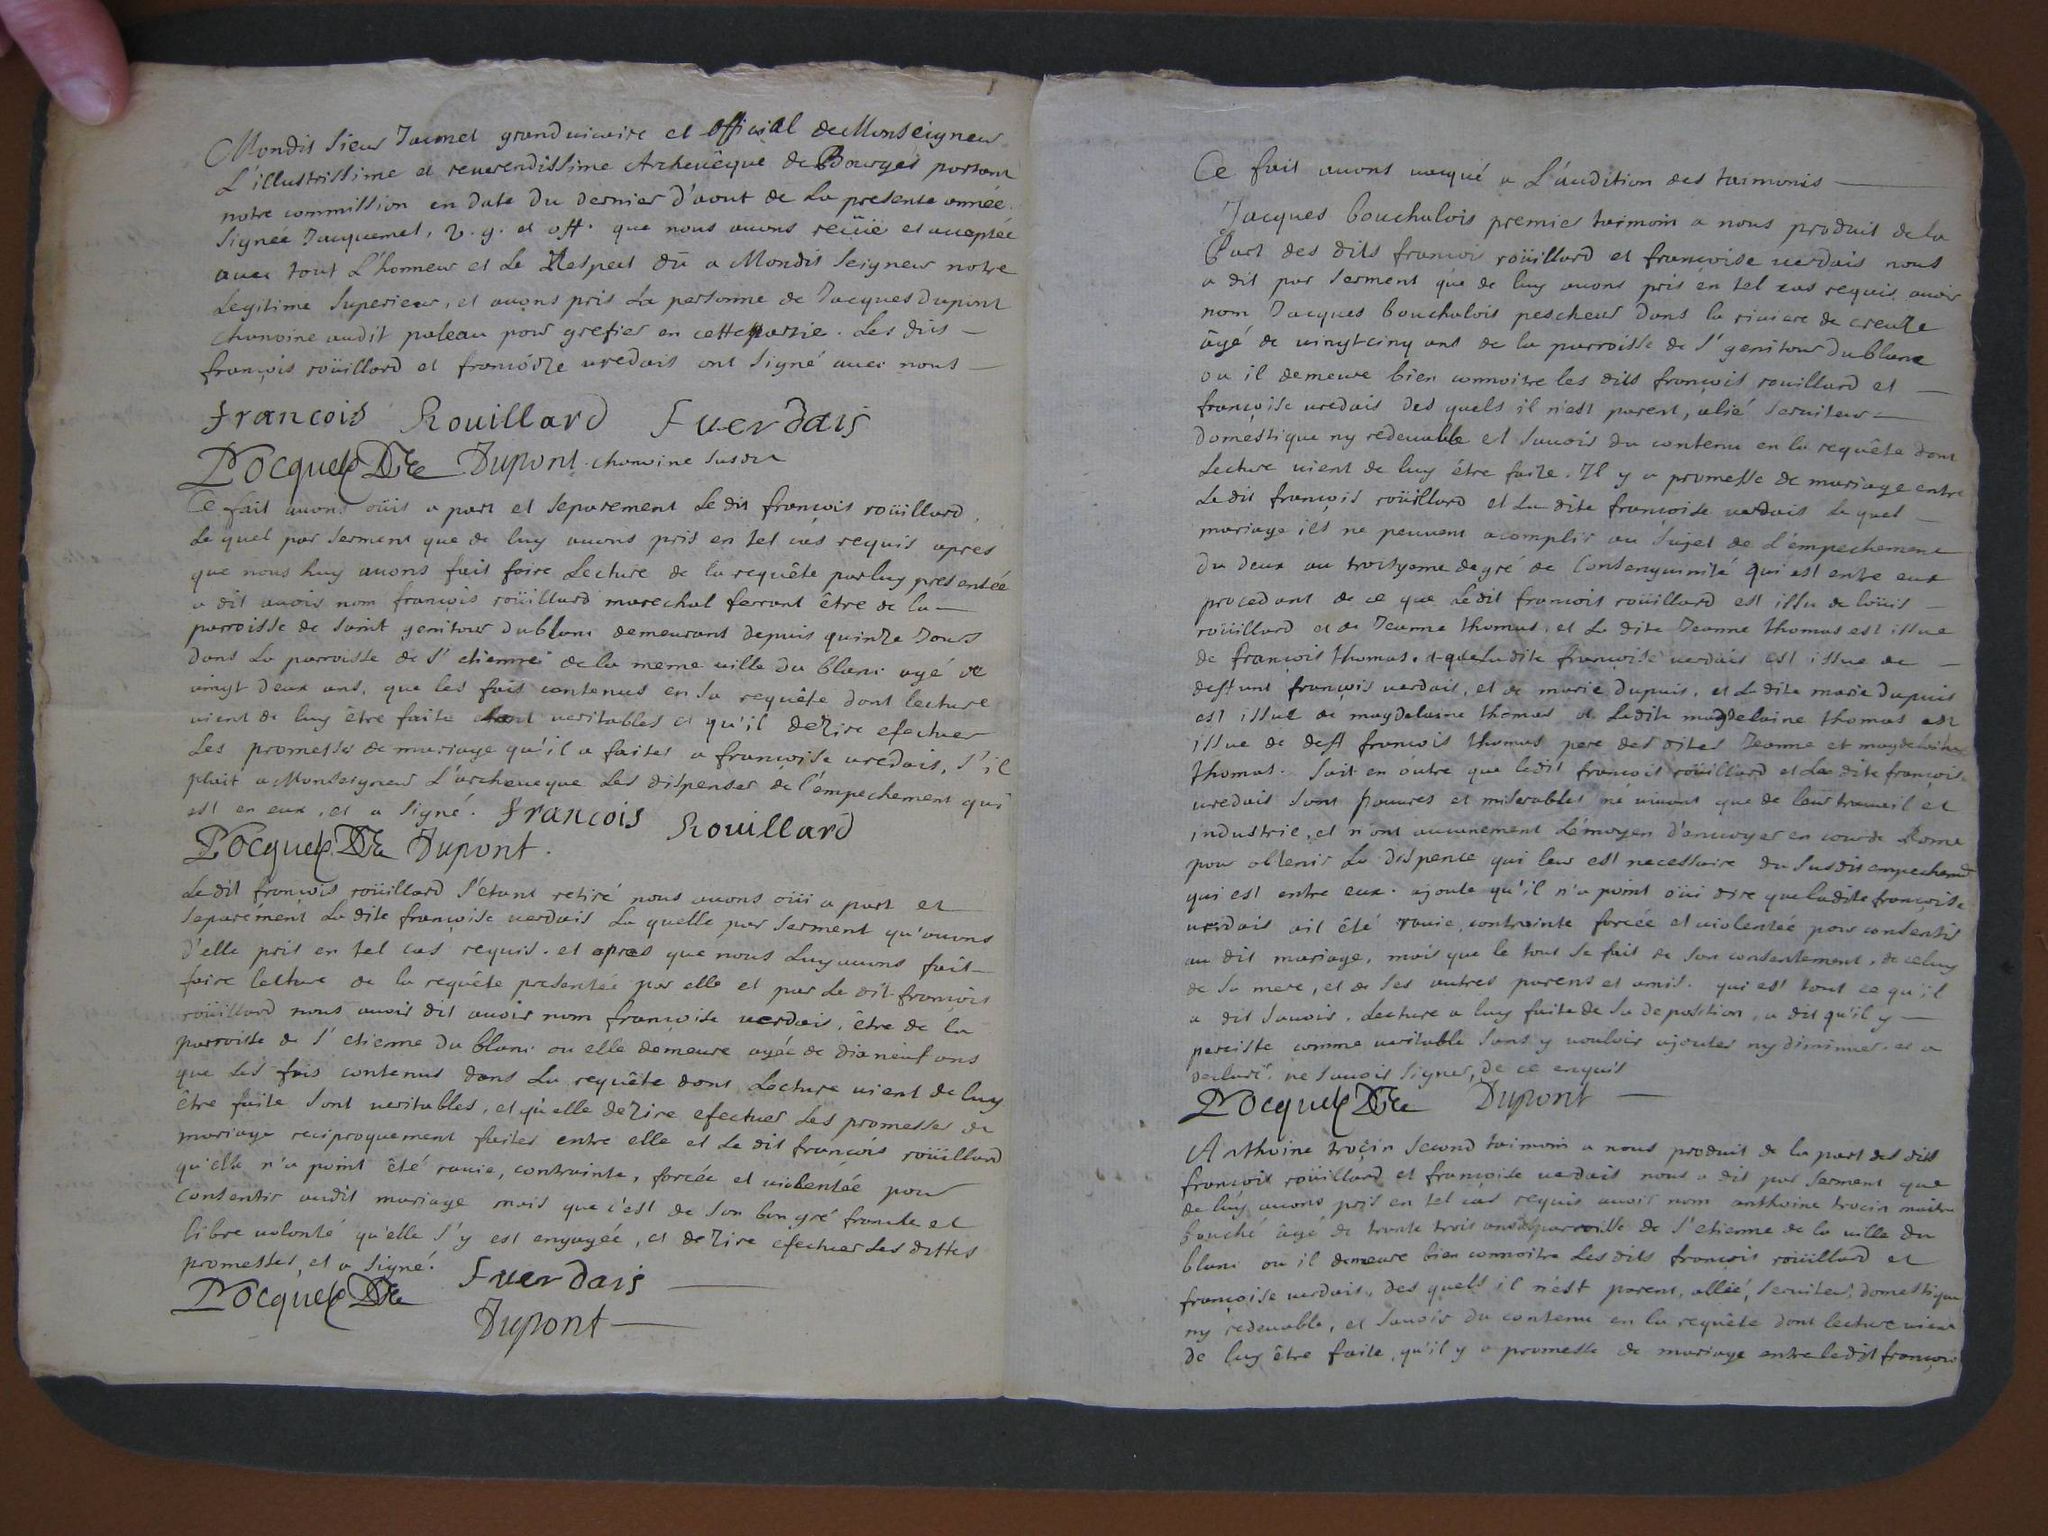 Mondit Sieur Jacmet grand vicaire et official de Monseigneur
L'illustrissime et reverendissime Archevêque de Bourges portant
notre commission en date du dernier d'aout de La presente année
Signée Jacquemet, v. g. et off. que nous avons reçüe et acceptée
avec tout L'honneur et Le Respect dû a Mondit Seigneur notre
Legitime Superieur, et avons pris La personne de Jacques Dupont
chanoine audit paleau pour grefier en cette partie. Les dits
françois roüillard et françoise verdais ont signé avec nous
François Rouillard F verdais
Dupont chanoine susdit
Ce fait avons oüis a part et separement Le dit françois roüillard,
Le quel par serment que de luy avons pris en tel cas requis apres
que nous luy avons fait faire Lecture de la requête par luy presentée
a dit avoir nom françois roüillard marechal ferrant être de la
parroisse de saint genitour dublanc demeurant depuis quinze Jours
dans La parroisse de St etienne de la meme ville du blanc agé de
vingt deux ans, que les fais contenus en sa requête dont lecture
vient de luy être faite sont veritables et qu'il dezire efectuer
Les promesses de mariage qu'il a faites a françoise verdais, s'il
plait a Monseigneur L'archeveque Les dispenser de l'empechement qui
est en eux, et a signé. François Rouillard
Dupont.
Le dit françois roüillard s'étant retiré nous avons oüi a part et
separément La dite françoise verdais La quelle par serment qu'avons
d'elle pris en tel cas requis. et apres que nous Luy avons fait
faire lecture de la requête presentée par elle et par Le dit françois
roüillard nous avoir dit avoir nom françoise verdais, être de la
parroisse de St etienne du blanc ou elle demeure agée de dix neuf ans
que Les fais contenus dans La requête dont Lecture vient de luy
être faite sont veritables, et qu'elle dezire efectuer Les promesses de
mariage reciproquement faites entre elle et Le dit françois roüillard
qu'elle n'a point été ravie, contrainte, forcée et violentée pour
consentir audit mariage mais que c'est de son bon gré franche et
libre volonté qu'elle s'y est engagée, et dezire efectuer Les dittes
promesses, et a signé. F verdais
Dupont
Ce fait avons vacqué a L'audition des taimoins
Jacques bouchalois premier taimoin a nous produit de la
Part des dits francois roüillard et françoise verdais nous
a dit par serment que de luy avons pris en tel cas requis avoir
nom Jacques bouchalois pescheur dans la riviere de creuze
âgé de vingt cinq ans de la parroisse de St genitour du blanc
ou il demeure bien connoitre les dits françois rouillard et
françoise verdais des quels il n'est parent, alié serviteur
domestique ny redevable et savoir du contenu en la requête dont
Lecture vient de luy être faite. Il y a promesse de mariage entre
Le dit françois roüillard et La dite françoise verdais Le quel
mariage ils ne peuvent acomplir au sujet de L'empechement
du deux au troisyeme degré de Consenguinité qui est entre eux
procedant de ce que Ledit francois roüillard est issu de loüis
roüillard et de Jeanne thomas, et La dite Jeanne thomas est issue
de françois thomas, et que La dite françoise verdais est issue de
deffunt françois verdais, et de marie Dupuis, et La dite marie dupuis
est issue de magdelaine thomas et Ladite magdelaine thomas est
issue de deff françois thomas pere des dites Jeanne et magdelaine
thomas. Sait en outre que ledit françois roüillard et La dite françoise
verdais sont pauvres et miserables ne vivant que de leur travail et
industrie, et n'ont aucunement Lemoyen d'envoyer en cour de Rome
pour obtenir La dispence qui leur est necessaire du susdit empechemt
qui est entre eux. ajoute qu'il n'a point oüi dire que ladite françoise
verdais ait été ravie, contrainte forcée et violentée pour consentir
au dit mariage, mais que le tout se fait de son consentement, de celuy
de sa mere, et de ses autres parens et amis. qui est tout ce qu'il
a dit savoir. Lecture a luy faite de sa deposition, a dit qu'il y
perciste comme veritable sans y vouloir ajouter ny diminuer. et a
declaré ne savoir signer, de ce enquis
Dupont
Anthoine troçin second taimoin a nous produit de la part des dits
françois roüillard et françoise verdais nous a dit par serment que
de luy avons pris en tel cas requis avoir nom anthoine trocin maitre
bouché âgé de trente trois ans de parroisse de St etienne de la ville du
blanc ou il demeure bien connoitre Les dits françois roüillard et
françoise verdais, des quels il n'est parent, allié, serviteur, domestique
ny redevable, et savoir du contenu en la requête dont lecture vient
de luy être faite, qu'il y a promesse de mariage entre ledit françois